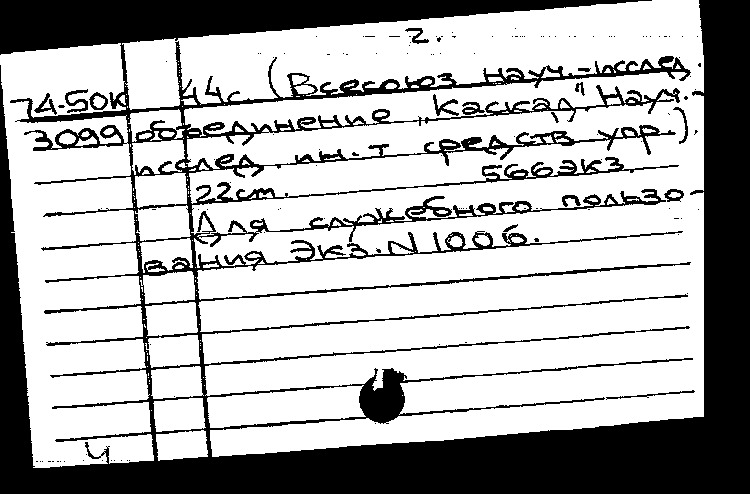 2.
74-50К 44с. (Всесоюз науч.-исслед.
3099 объединение „Каскад" Науч.-
исслед. ин.-т средств упр.).
22см. 566экз.
Для служебного пользо-
вания Экз. N 1006.
Ч